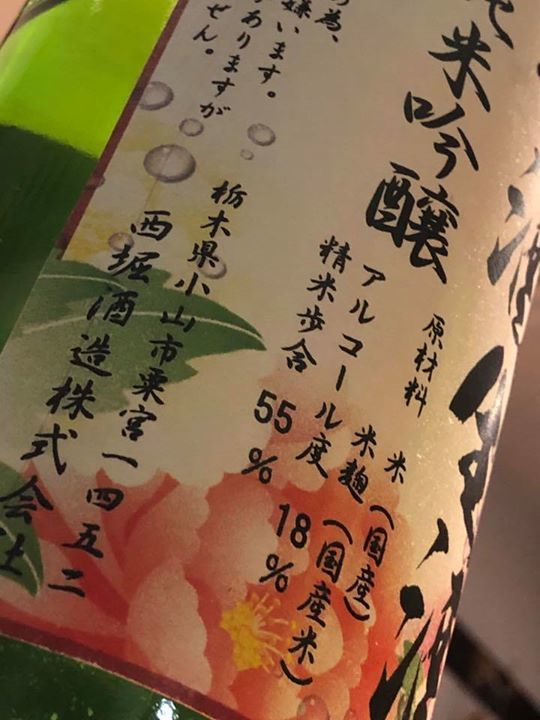 米吟醸
原材料 米(国産)
米麹(国産米)
アルコール度 18%
精米歩合 55%
栃木県小山市粟宮一四五二
西堀酒造株式会社
の為、
嫌います。
ありますが
せん。